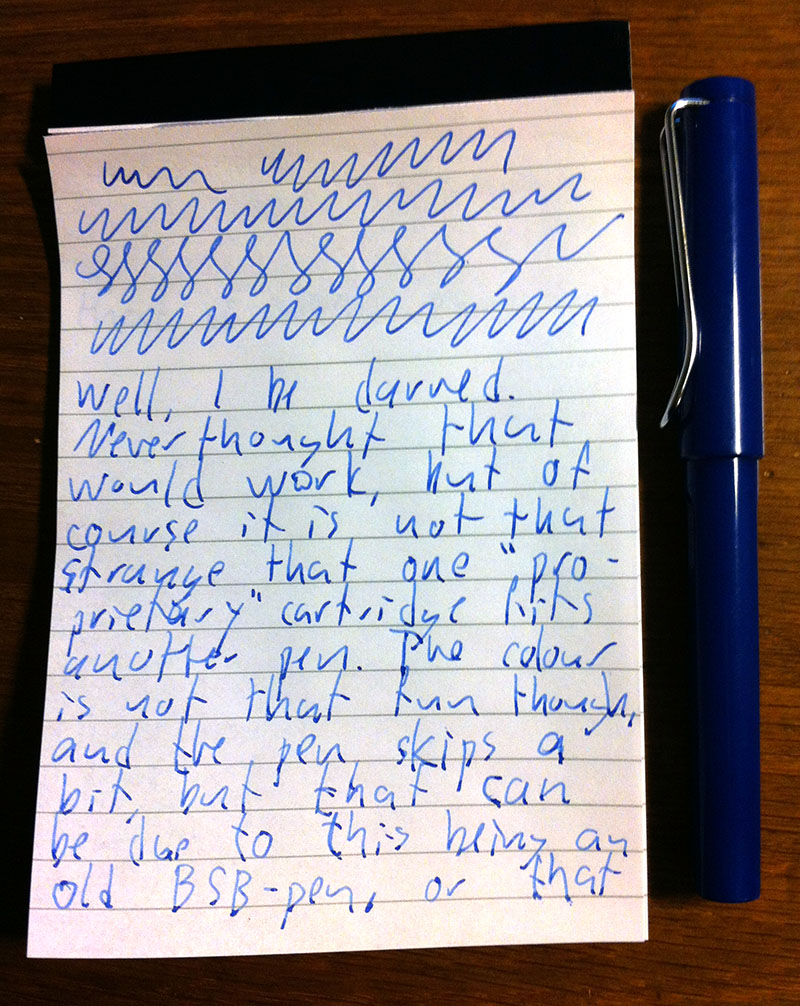 Well, I be darned.
Never thought that
would work, but of
course it is not that
strange that one "pro-
prietary" cartridge fits
another pen. The colour
is not that fun though,
and the pen skips a
bit, but that can
be due to this being an
old BSB-pen, or that